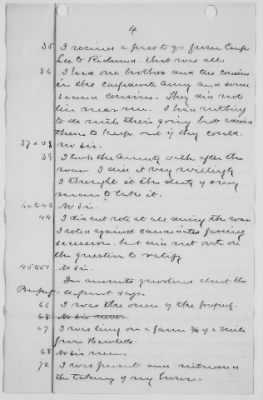 4
35 I received a pass to go from Camp
Lee to Richmond. that was all.
36 I had one brother and two cousins
in the Confederate Army and some
second cousins. They did not
live near me. I had nothing
to do with their going but advised
them to keep out if they could.
37 to 38 No Sir.
39 I took the Amnesty oath after the
war I did it very willingly
I thought it the duty of every
man to take it.
40 to 43 No Sir.
44 I did not vote at all during the war
I voted against candidates favoring
secession. but did not vote on
the question to ratify
45 to 51 No Sir.
In answer to questions about the
Property deponent says.
66 I was the owner of the property.
68 No Sir never.
67 I was living on a farm 3/4 of a mile
from
68 No Sir never.
72 I was present and witnessed
the taking of my horse.